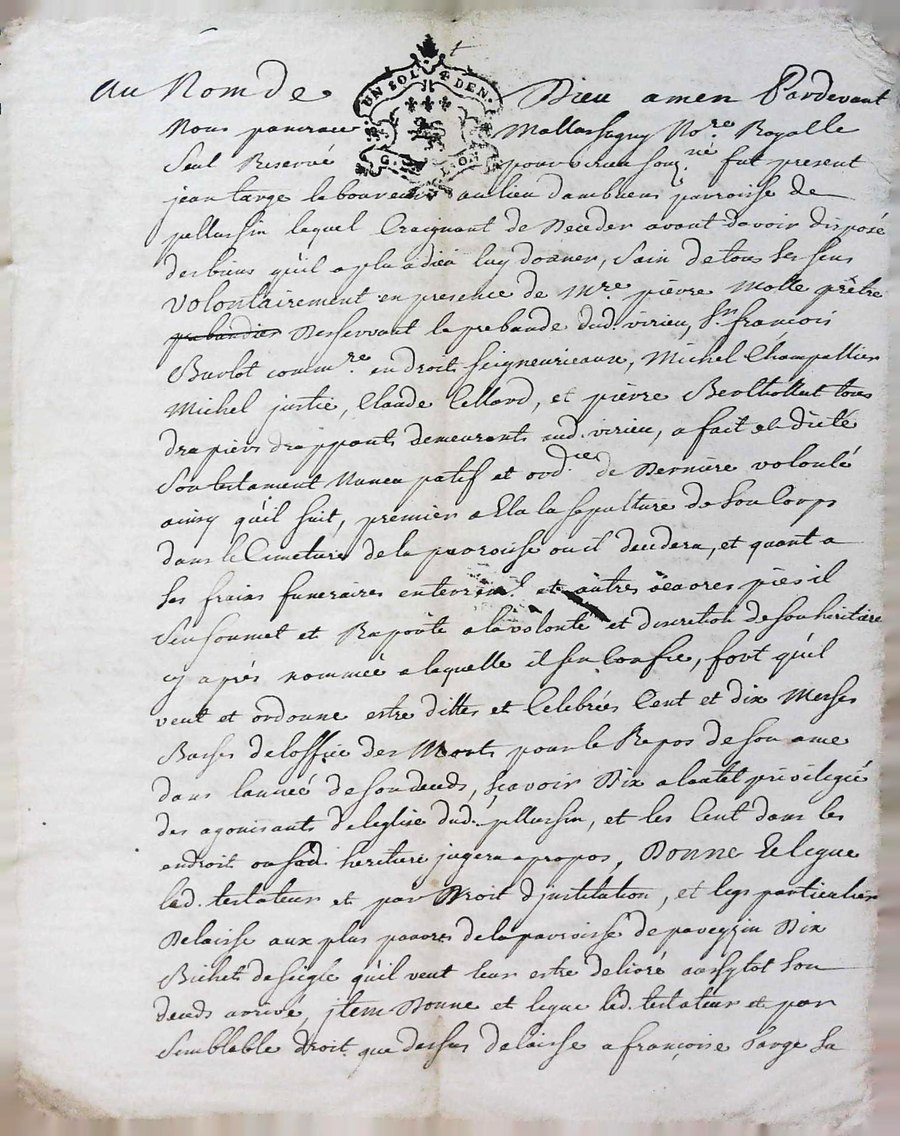 au Nom de Dieu amen Pardevant
UN SOL 4 DEN.
G. LION
Nous pancrace Mallassagny No.re Royalle
Seul Reservé pour virieu souz.né fut present
jean targe laboureur au lieu dambuens parroisse de
pellussin lequel Craignant de Deceder avant davoir disposé
des biens qu'il a plu a dieu luy donner, Sain de tous ses sens
volontairement en presence de M.re pierre Molle prêtre
prebandier Desservant la prebande dud. virieu, S.r francois
Burlot comm.re en droit Seigneuriaux, Michel Champallier
Michel justie, Claude Cellard, et pierre Berthollat tous
drapiers drappants demeurants aud. virieu, a fait et dicté
Son testament Nuncupatif et ord.re de Derniere volonté
ainsy qu'il suit, premier a Elu la sepulture de Son Corps
dans le Cimetiere de la parroisse ou il decedera, et quant a
Ses frais funeraires enterrem.t et autres oeuvres pies il
S'en soumet et Raporte a la volonté et discretion de Son heritiere
cy aprés nommée a laquelle il s'en Confie, fort qu'il
veut et ordonne estre dittes et Celebrées Cent et dix Messes
Basses de loffice des Morts pour le Repos de Son ame
dans lannée de Son deceds, Sçavoir Dix a lautel privilegié
des agonisants d'eleglise dud. pellussin, et les Cent dans les
endroit ou sad. heritiere jugera apropos, Donne et legue
led. testateur et par Droit d'jnstitution, et legs particulier
Delaisse aux plus pauvres de la parroisse de pavezin Dix
Bichets de seigle qu'il veut leur estre delivré aussytot Son
deceds arrivé, jtem Donne et legue led. testateur et par
Semblable droit que dessus delaisse a françoise targe Sa